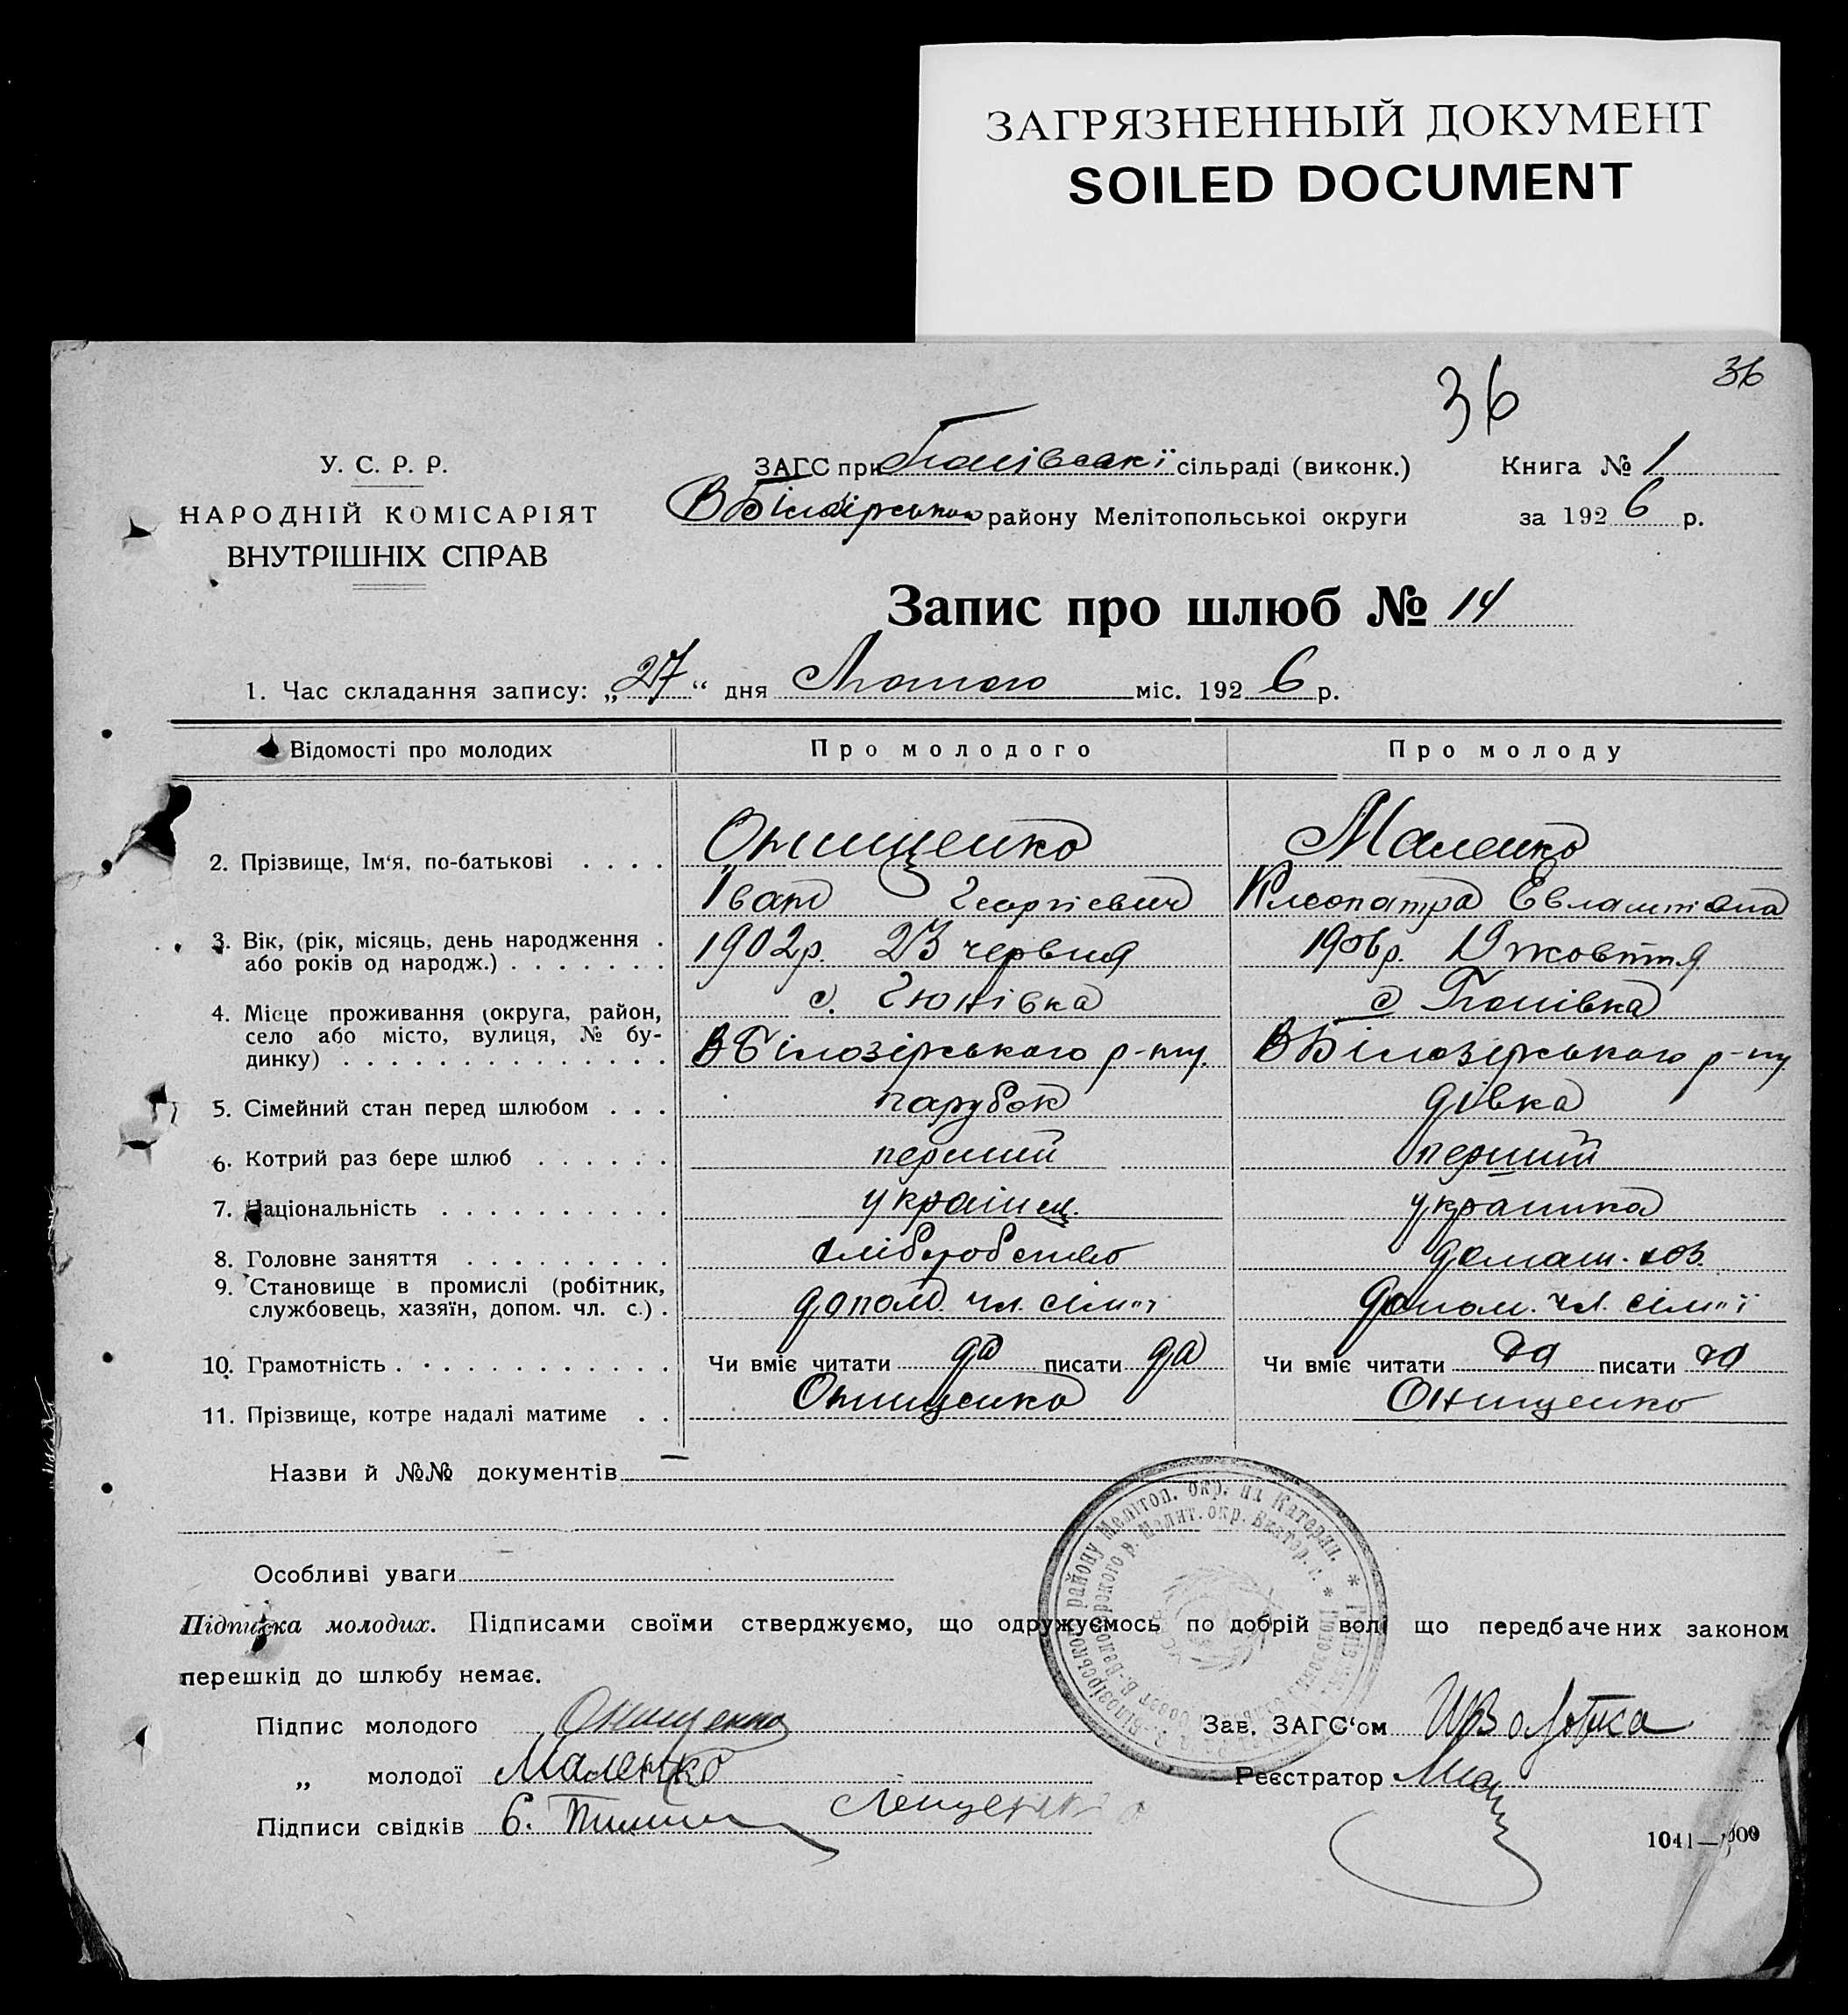 ЗАГРЯЗНЕННЫЙ ДОКУМЕНТ
SOILED DOCUMENT
36
36
У. С. Р. Р.
НАРОДНІЙ КОМІСАРІЯТ
ВНУТРІШНІХ СПРАВ
ЗАГС при сільраді (виконк.) Книга № 1
району Мелітопольськоі округи за 1926 р.
Запис про шлюб № 14
1. Час складання запису: „27“ дня Лютого міс. 1926 р.
Відомості про молодих Про молодого Про молоду
2. Прізвище, Ім'я, по-батькові Онищенко Маленко
Іван Георгієвич Клеопатра
3. Вік, (рік, місяць, день народження 1902 р. 23 червня 1906 р. 19 жовття
або років од народж.)
4. Місце проживання (округа, район, с. Гюнівка с
село або місто, вулиця, № будинку) В Білозірського р-ну. В Білозірського р-ну
5. Сімейний стан перед шлюбом парубок дівка
6. Котрий раз бере шлюб перший перший
7. Національність українец. украінка
8. Головне заняття хліборобство домаш. хоз.
9. Становище в промислі (робітник, допом. чл. сімії допом. чл. сімії
службовець, хазяїн, допом. чл. с.)
10. Грамотність Чи вміє читати да писати да Чи вміє читати да писати да
11. Прізвище, котре надалі матиме Онищенко Онищенко
Назви й №№ документів —
Особливі уваги
Підписка молодих. Підписами своїми стверджуємо, що одружуємось по добрій волі що передбачених законом
перешкід до шлюбу немає.
Підпис молодого Онищенко Зав. ЗАГС'ом
„ молодої Маленко Реєстратор
Підписи свідків Є.
1041—